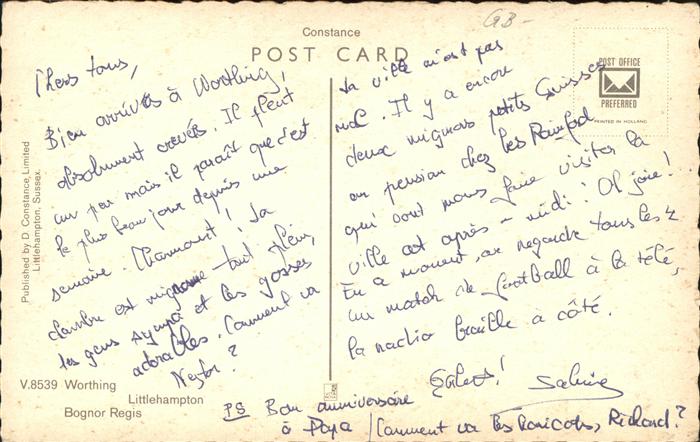 GB-
Constance
POST CARD
POST OFFICE
PREFERRED
PRINTED IN HOLLAND
Published by D. Constance Limited
Littlehampton, Sussex.
Chers tous,
Bien arrivés à Worthing,
absolument crevés. Il pleut
un peu mais il paraît que c'est
le plus beau jour depuis une
semaine. Charmant ! La
chambre est mignonne tout plein,
les gens sympa et les gosses
adorables. Comment va
Nestor ?
La ville n'est pas
mal. Il y a encore
deux mignons petits Suisses
en pension chez les
qui vont nous faire visiter la
ville cet après-midi ! Oh joie !
En ce moment, on regarde tous les 4
un match de football à la télé,
la radio braille à côté.
Salut ! Sabine
PS Bon anniversaire
à Papa / Comment va les haricots, Richard ?
V.8539 Worthing
Littlehampton
Bognor Regis